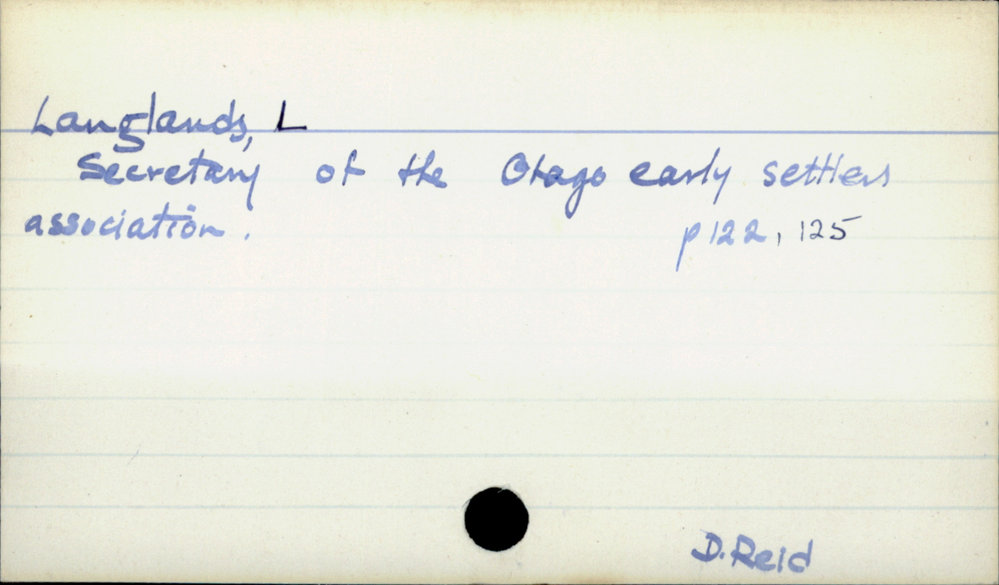 Langlands, L
Secretary of the Otago early settlers
association.
p 122, 125
D. Reid